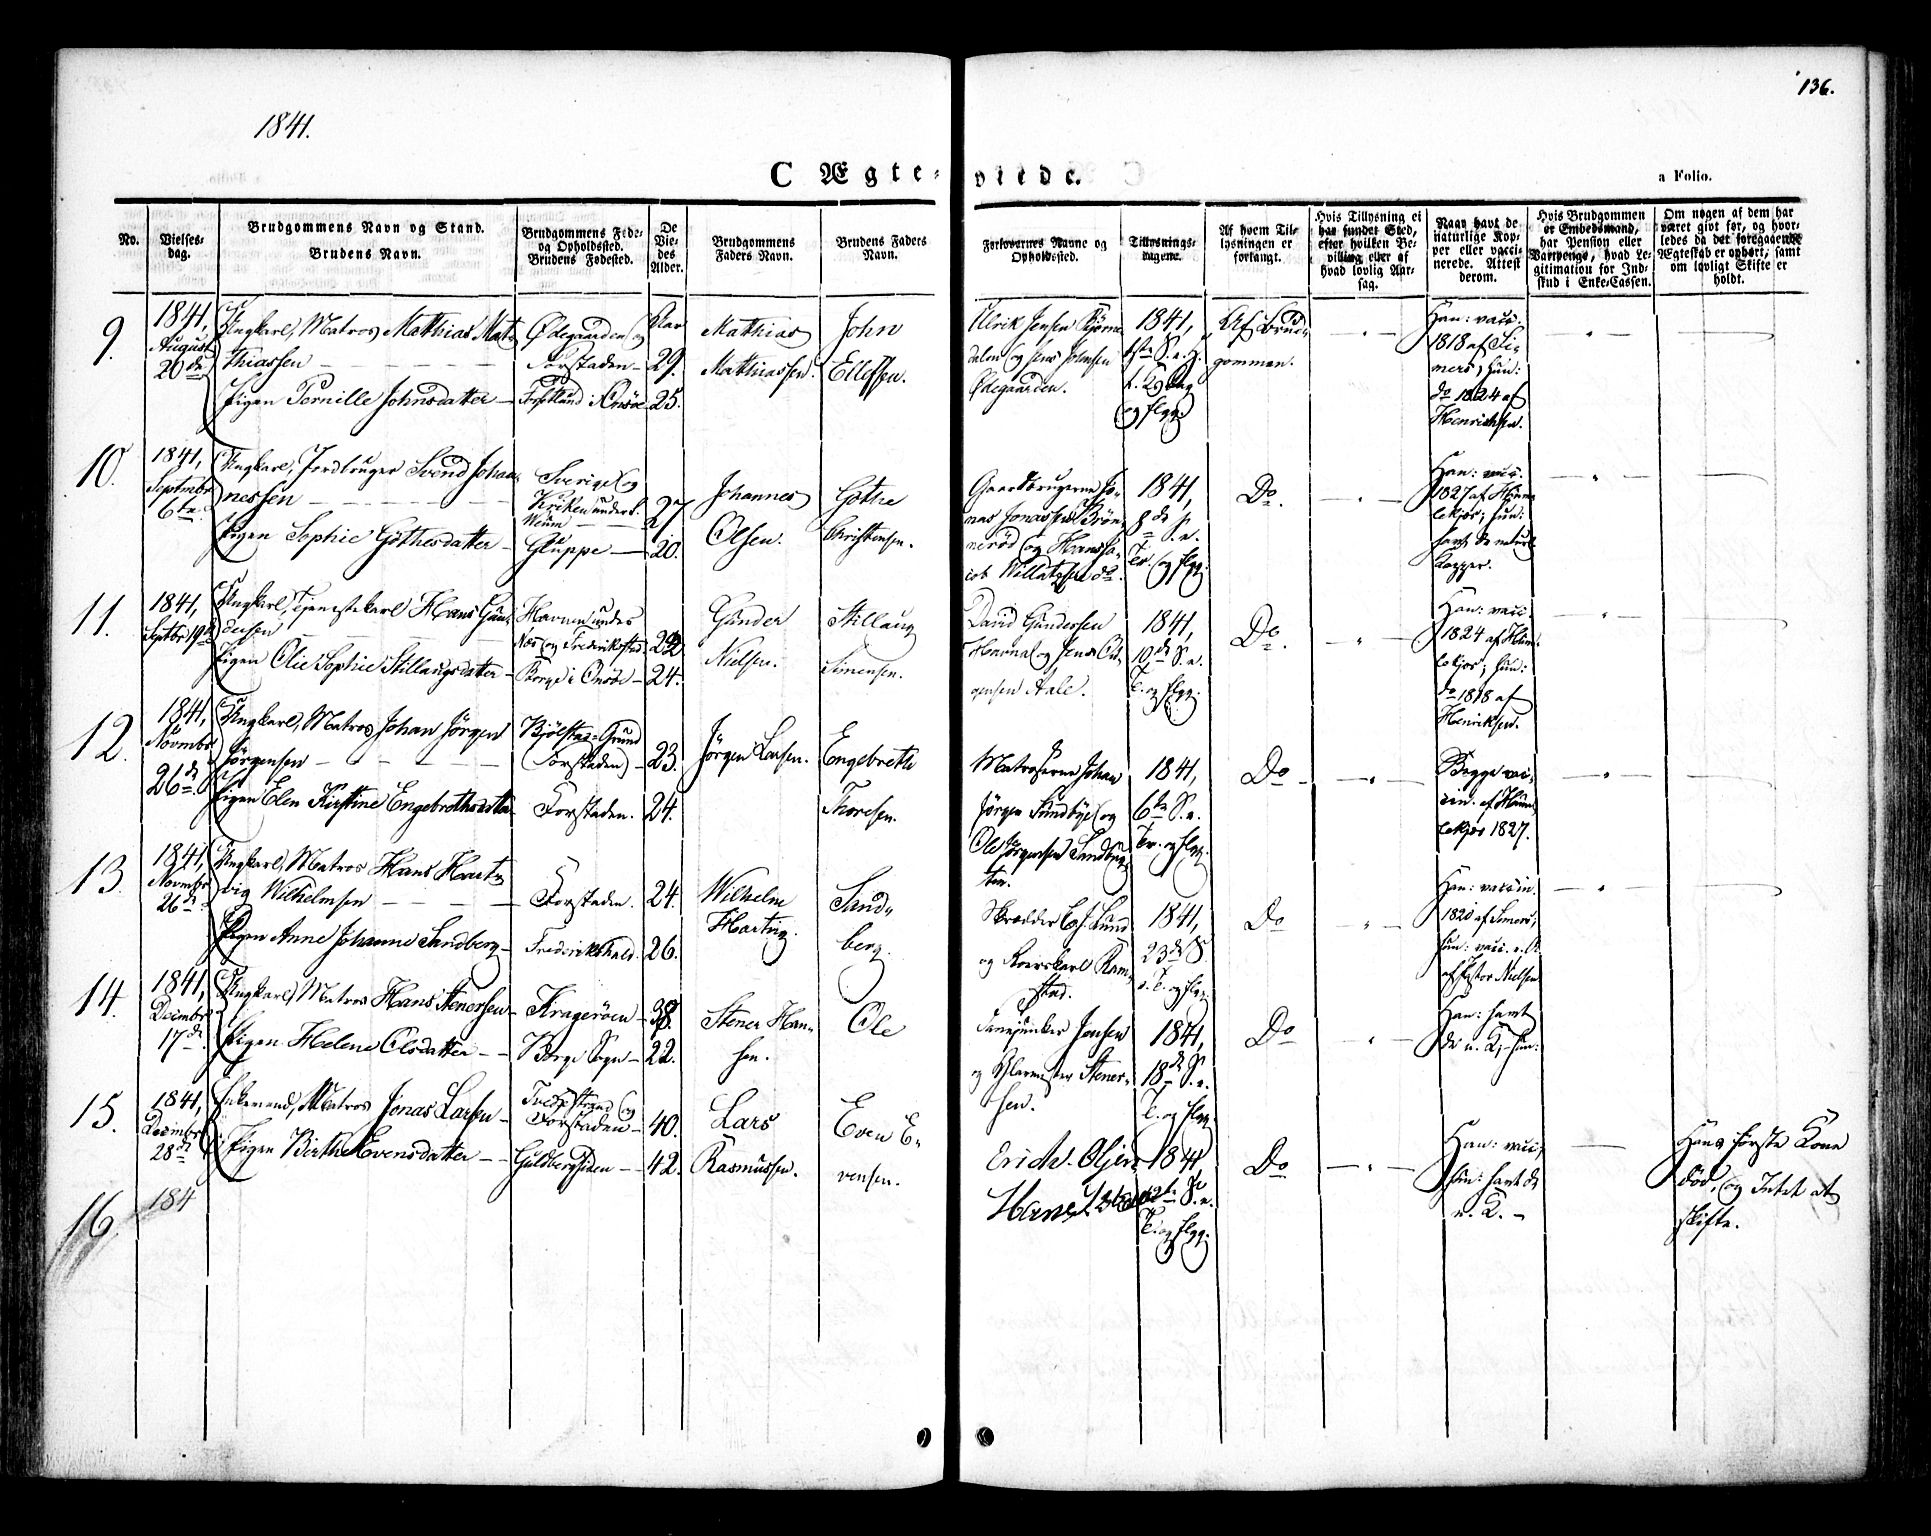 136.
1841.
C Ægte-
viede.
a Folio.
No.
Vielses-
dag.
Brudgommens Navn og Stand.
Brudens Navn.
Brudgommens Føde-
og Opholdssted.
Brudens Fødested.
De
Vie-
des
Alder.
Brudgommens
Faders Navn.
Brudens Faders
Navn.
Forlovernes Navne og
Opholdssted.
Tillysnings-
dagene.
Af hvem Til-
lysningen er
forlangt.
Hvis Tillysning ei
har fundet Sted,
efter hvilken Be-
villing eller af
hvad lovlig Aar-
sag.
Naar havt de
naturlige Kop-
per eller vacci-
nerede. Attest
derom.
Hvis Brudgommen
er Embedsmand,
har Pension eller
Vartpenge, hvad Le-
gitimation for Ind-
skud i Enke-Cassen.
Om nogen af dem har
været givt før, og hvor-
ledes da det foregaaende
Ægteskab er ophørt, samt
om lovligt Skifte er
holdt.
9.
1841,
August
20de
Ungkarl, Matros Mathias Mat-
thiassen
Pigen Pernille Johnsdatter
Ødegaarden og
Forstaden
i Onsøe
Aar
29.
25.
Mathias
Mathiassen.
John
Ellefsen.
Ulrik Jensen Bjørne-
dalen og Jens Johnsen
Ødegaarden.
1841,
og flgg.
Af Brud-
gommen.
Han: vacc:
1818 af Si-
mers, hun:
do 1824 af
Henrichsen.
10.
1841,
Septembr
6te
Ungkarl, Jordbruger Svend Johan-
nessen
Pigen Sophie Gøthesdatter
Sverige og
Kirken under
Gluppe
27
20.
Johannes
Olsen.
Gøthe
Christensen.
Gaardbrugerne Jo-
nas Jonassen Brøn-
nerød og Hans Ja-
cob Willatzsen do.
1841,
8de S. e.
Tr. og flgg.
Do.
Han: vacc:
1827 af Hum-
lekjær; hun:
havt de naturl.
Kopper.
11.
1841,
Septbr 19de
Ungkarl, Tjenestekarl Hans Gun-
dersen
Pigen Olie Sophie Stillaugsdatter
Havnen under
Næs og Frederikstad
Borge i Onsøe
24.
Gunder
Nielsen.
Stillaug
Simensen.
David Gundersen
Aale.
1841,
10de S. e.
T. og flgg.
Do.
Han: vacc:
1824 af Hum-
lekjær; hun:
do 1818 af
Henriksen.
12.
1841,
Novembr
26de
Ungkarl, Matros Johan Jörgen
Jörgensen
Pigen Elen Kirstine Engebrethsdatter
Grund
(Forstaden)
Forstaden.
23.
24.
Jörgen Larsen.
Engebreth
Thoresen.
Matroserne Johan
Jörgen Sundbye og
Ole Jörgensen
1841,
6te S. e.
Tr. og flgg.
Do
Begge vac-
cin. af Hum-
lekjær 1827.
13.
1841,
Novembr
26de
Ungkarl, Matros Hans Hart-
vig Wilhelmsen
Pigen Anne Johanne Sandberg
Forstaden.
Frederikshald.
24.
26.
Wilhelm
Hartvig.
Sand-
berg.
Skrædder Lund
og Ram-
stad.
1841,
23de S.
e. T. og flgg.
Do
Han: vaccin.
1820 af Simers,
hun: vacc.
af Pastor Nielsen
14.
1841,
Decembr
17de
Ungkarl, Matros Hans Stenersen
Pigen Helene Olsdatter
Kragerøen
Borge Sogn
38.
22.
Stener Han-
sen.
Ole
Fanejunker Jensen
og Glarmester Stener-
sen.
1841,
18de S. e.
T. og flgg.
Do
Han: havt
de n. K; hun:
15.
1841,
Decembr
28de
Enkemand, Matros Jonas Larsen
Pigen Birthe Evensdatter
og
Forstaden
Guldbergsiden
40.
42.
Lars
Rasmussen.
Even E-
vensen.
Erich
1841,
S. e.
T. og flgg.
Do
Han: vacc;
hun: havt de
n. K. -
Hans første Kone
død, og Intet at
skifte.
16.
184